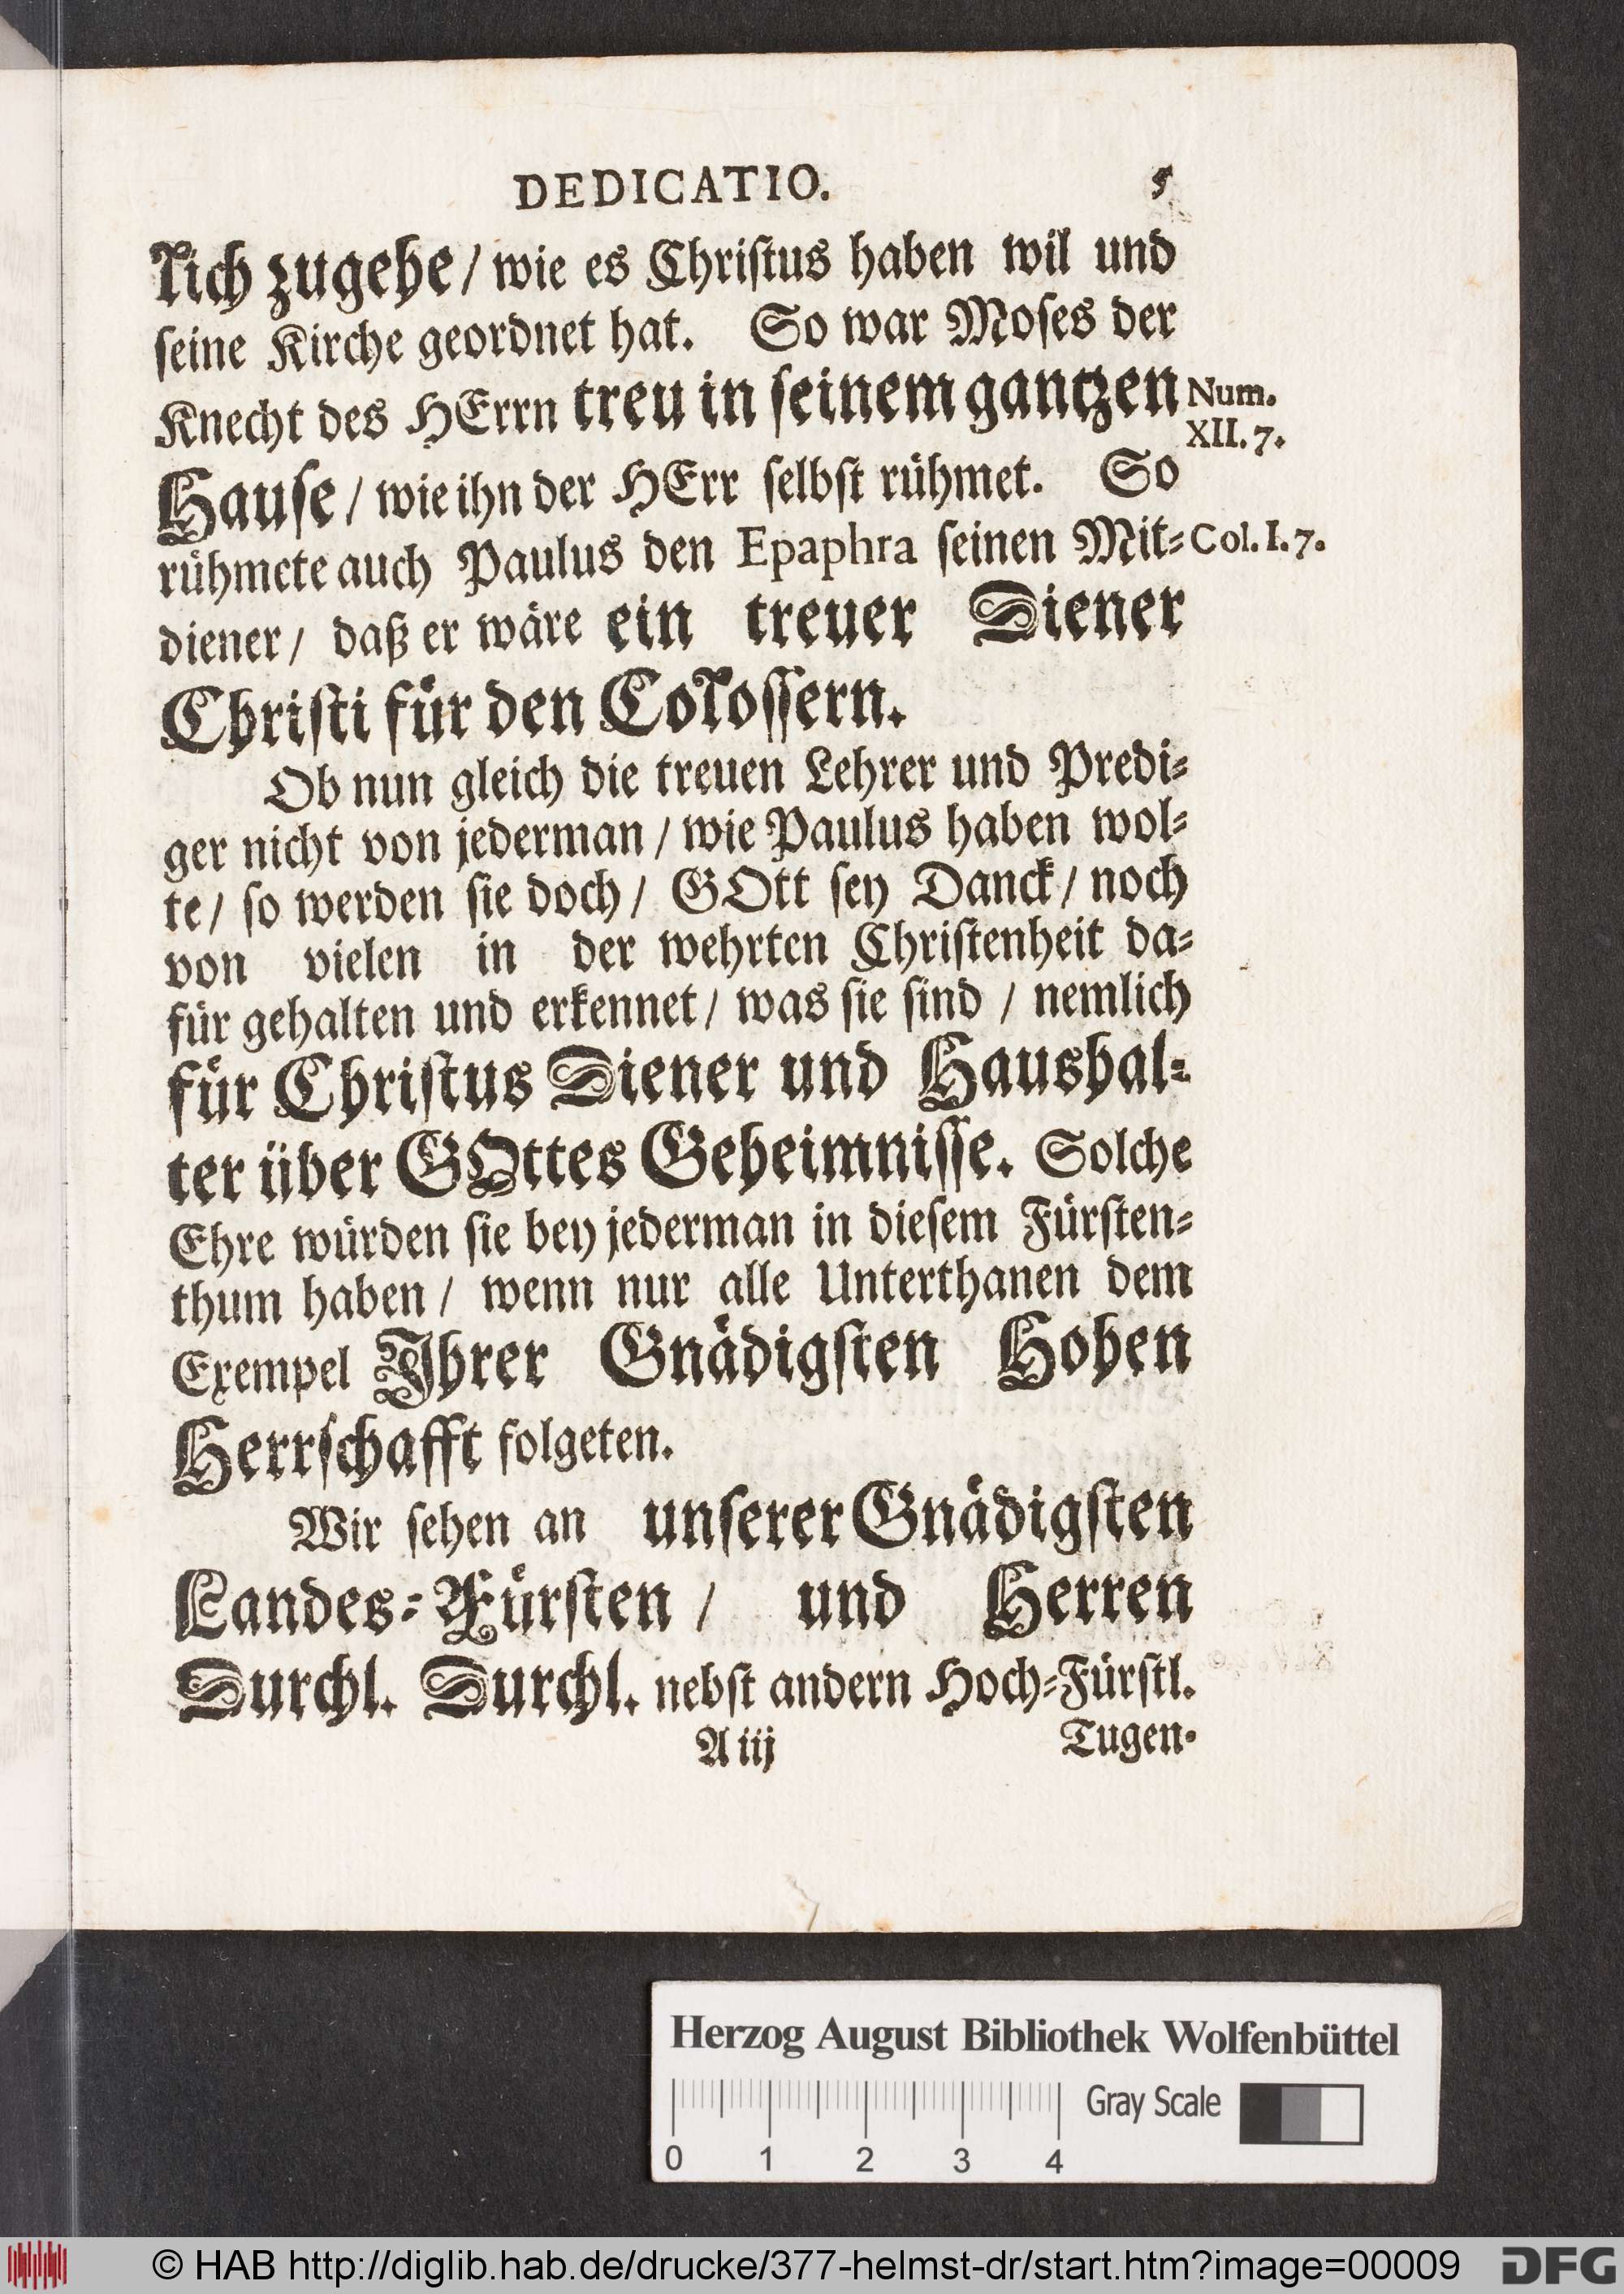 DEDICATIO. 5
lich zugehe / wie es Chriſtus haben wil und
ſeine Kirche geordnet hat. So war Moſes der
Knecht des HErrn treu in ſeinem gantzen
Num.
XII. 7.
Hauſe / wie ihn der HErr ſelbſt rühmet. So
rühmete auch Paulus den Epaphra ſeinen Mit⸗
Col. I. 7.
diener / daß er wäre ein treuer Diener
Chriſti für den Coloſſern.
Ob nun gleich die treuen Lehrer und Predi⸗
ger nicht von jederman / wie Paulus haben wol⸗
te / ſo werden ſie doch / GOtt ſey Danck / noch
von vielen in der wehrten Chriſtenheit da⸗
für gehalten und erkennet / was ſie ſind / nemlich
für Chriſtus Diener und Haushal⸗
ter über GOttes Geheimniſſe. Solche
Ehre würden ſie bey jederman in dieſem Fürſten⸗
thum haben / wenn nur alle Unterthanen dem
Exempel Ihrer Gnädigſten Hohen
Herrſchafft folgeten.
Wir ſehen an unſerer Gnädigſten
Landes⸗Fürſten / und Herren
Durchl. Durchl. nebſt andern Hoch⸗Fürſtl.
A iij Tugen⸗
Herzog August Bibliothek Wolfenbüttel
Gray Scale
0 1 2 3 4
© HAB http://diglib.hab.de/drucke/377-helmst-dr/start.htm?image=00009 DFG